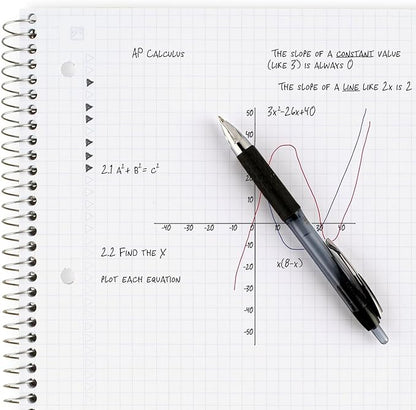 AP CALCULUS
THE SLOPE OF A CONSTANT VALUE
(LIKE 3) IS ALWAYS 0
THE SLOPE OF A LINE LIKE 2x IS 2
3x²-26x+40
50
40
20
2.1 A² + B² = C²
-40 -30 -20 -10 10 30 40
-10
2.2 FIND THE X
x(8-x)
-20
PLOT EACH EQUATION
-30
-40
-50